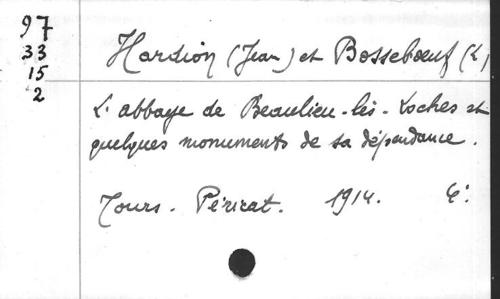 97
33
15
2
Hardion (Jean) et Bosseboeuf (L)
L'abbaye de Beaulieu-lès-Loches et
quelques monuments de sa dépendance.
Tours. Péricat. 1914. 4º.